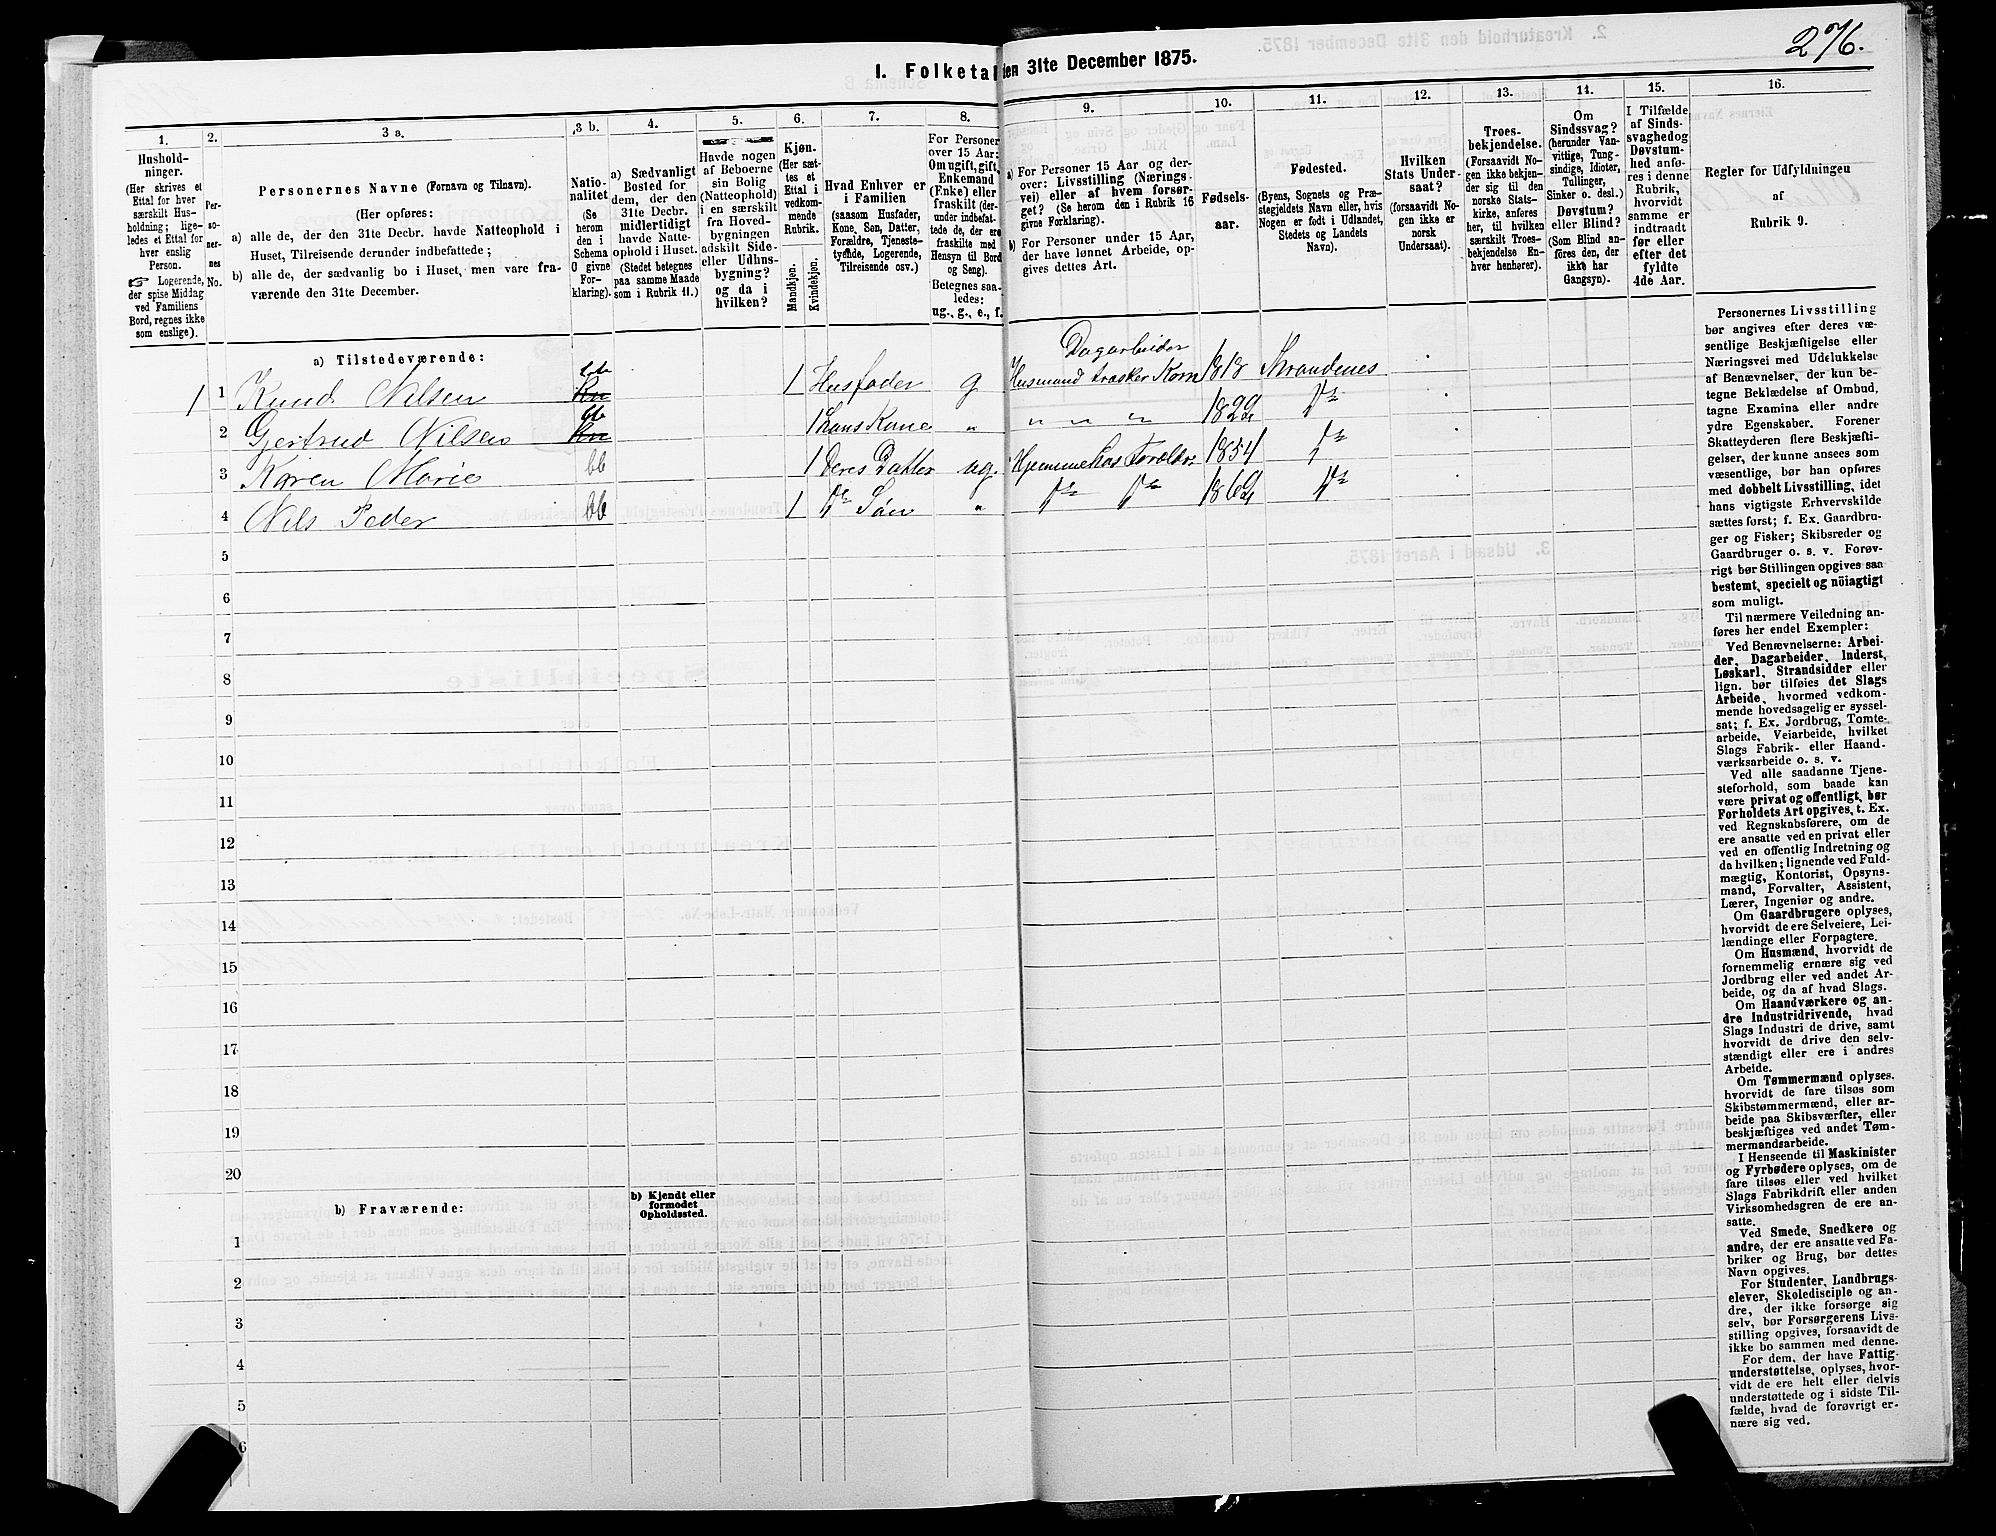 276.
I. Folketal den 31te December 1875.
1. 2. 3 a. 3 b. 4. 5. 6. 7. 8. 9. 10. 11. 12. 13. 14. 15. 16.
Hushold-
ninger.
(Her skrives et
Ettal for hver
særskilt Hus-
holdning; lige-
ledes et Ettal for
hver enslig
Person.
☞ Logerende,
der spise Middag
ved Familiens
Bord, regnes ikke
som enslige).
Per-
so-
ner-
nes
No.
Personernes Navne (Fornavn og Tilnavn).
(Her opføres:
a) alle de, der den 31te Decbr. havde Natteophold i
Huset, Tilreisende derunder indbefattede;
b) alle de, der sædvanlig bo i Huset, men vare fra-
værende den 31te December.
Natio-
nalitet
(Se
herom
den i
Schema
O givne
For-
klaring).
a) Sædvanligt
Bosted for
dem, der den
31te Decbr.
midlertidigt
havde Natte-
ophold i Huset.
(Stedet betegnes
paa samme Maade
som i Rubrik 11.)
Havde nogen
af Beboerne
sin Bolig
(Natteophold)
i en særskilt
fra Hoved-
bygningen
adskilt Side-
eller Udhus-
bygning?
og da i
hvilken?
Kjøn.
(Her sæt-
tes et
Ettal i
vedkom-
mende
Rubrik.
Mandkjøn.
Kvindekjøn.
Hvad Enhver er
i Familien
(saasom Husfader,
Kone, Søn, Datter,
Forældre, Tjeneste-
tyende, Logerende,
Tilreisende osv.)
For Personer
over 15 Aar:
Om ugift, gift,
Enkemand
(Enke) eller
fraskilt (der-
under indbefat-
tede de, der ere
fraskilte med
Hensyn til Bord
og Seng).
Betegnes saa-
ledes:
ug., g., e., f.
a) For Personer 15 Aar og der-
over: Livsstilling (Nærings-
vei) eller af hvem forsør-
get? (Se herom den i Rubrik 16
givne Forklaring).
b) For Personer under 15 Aar,
der have lønnet Arbeide, op-
gives dettes Art.
Fødsels-
aar.
Fødested.
(Byens, Sognets og Præ-
stegjeldets Navn eller, hvis
Nogen er født i Udlandet,
Stedets og Landets
Navn).
Hvilken
Stats Under-
saat?
(forsaavidt No-
gen ikke er
norsk
Undersaat).
Troes-
bekjendelse.
(Forsaavidt No-
gen ikke bekjen-
der sig til den
norske Stats-
kirke, anføres
her, til hvilken
særskilt Troes-
bekjendelse En-
hver henhører).
Om
Sindssvag?
(herunder Van-
vittige, Tung-
sindige, Idioter,
Tullinger,
Sinker o. desl.)
Døvstum?
eller Blind?
(Som Blind an-
føres den, der
ikke har
Gangsyn).
I Tilfælde
af Sinds-
svaghed og
Døvstum-
hed anfø-
res i denne
Rubrik,
hvorvidt
samme er
indtraadt
før eller
efter det
fyldte
4de Aar.
Regler for Udfyldningen
af
Rubrik 9.
a) Tilstedeværende:
Dagarbeider
1 1 Knud Nilsen 1 Husfader g Husmand træsker Korn 1818 Throndenes
2 Gjertrud Nilsen 1 hans Kone " " " " 1822 Do
3 Karen Marie bb 1 Deres Datter ug. Hjemme hos Forældre 1854 Do
4 Nils Peder bb 1 Do Søn " Do Do 1862 Do
5
6
7
8
9
10
11
12
13
14
15
16
17
18
19
20
b) Fraværende:
b) Kjendt eller
formodet
Opholdssted.
1
2
3
4
5
6
Personernes Livsstilling
bør angives efter deres væ-
sentlige Beskjæftigelse eller
Næringsvei med Udelukkelse
af Benævnelser, der kun be-
tegne Beklædelse af Ombud,
tagne Examina eller andre
ydre Egenskaber. Forener
Skatteyderen flere Beskjæfti-
gelser, der kunne ansees som
væsentlige, bør han opføres
med dobbelt Livsstilling, idet
hans vigtigste Erhvervskilde
sættes først; f. Ex. Gaardbru-
ger og Fisker; Skibsreder og
Gaardbruger o. s. v. Forøv-
rigt bør Stillingen opgives saa
bestemt, specielt og nöiagtigt
som muligt.
Til nærmere Veiledning an-
føres her endel Exempler:
Ved Benævnelserne: Arbei-
der, Dagarbeider, Inderst,
Løskarl, Strandsidder eller
lign. bør tilføies det Slags
Arbeide, hvormed vedkom-
mende hovedsagelig er syssel-
sat; f. Ex. Jordbrug, Tomte-
arbeide, Veiarbeide, hvilket
Slags Fabrik- eller Haand-
værksarbeide o. s. v.
Ved alle saadanne Tjene-
steforhold, som baade kan
være privat og offentligt, bør
Forholdets Art opgives, t. Ex.
ved Regnskabsførere, om de
ere ansatte ved en privat eller
ved en offentlig Indretning og
da hvilken; lignende ved Fuld-
mægtig, Kontorist, Opsyns-
mand, Forvalter, Assistent,
Lærer, Ingeniør og andre.
Om Gaardbrugere oplyses,
hvorvidt de ere Selveiere, Lei-
lændinge eller Forpagtere.
Om Husmænd, hvorvidt de
fornemmelig ernære sig ved
Jordbrug eller ved andet Ar-
beide, og da af hvad Slags.
Om Haandværkere og an-
dre Industridrivende, hvad
Slags Industri de drive, samt
hvorvidt de drive den selv-
stændigt eller ere i andres
Arbeide.
Om Tømmermænd oplyses,
hvorvidt de fare tilsøs som
Skibstømmermænd, eller ar-
beide paa Skibsværfter, eller
beskjæftiges ved andet Tøm-
mermandsarbeide.
I Henseende til Maskinister
og Fyrbødere oplyses, om de
fare tilsøs eller ved hvilket
Slags Fabrikdrift eller anden
Virksomhedsgren de ere an-
satte.
Ved Smede, Snedkere og
andre, der ere ansatte ved Fa-
briker og Brug, bør dettes
Navn opgives.
For Studenter, Landbrugs-
elever, Skoledisciple og an-
dre, der ikke forsørge sig
selv, bør Forsørgerens Livs-
stilling opgives, forsaavidt de
ikke bo sammen med denne.
For dem, der have Fattig-
understøttelse, oplyses, hvor-
vidt de ere helt eller delvis
understøttede og i sidste Til-
fælde, hvad de forøvrigt er-
nære sig ved.